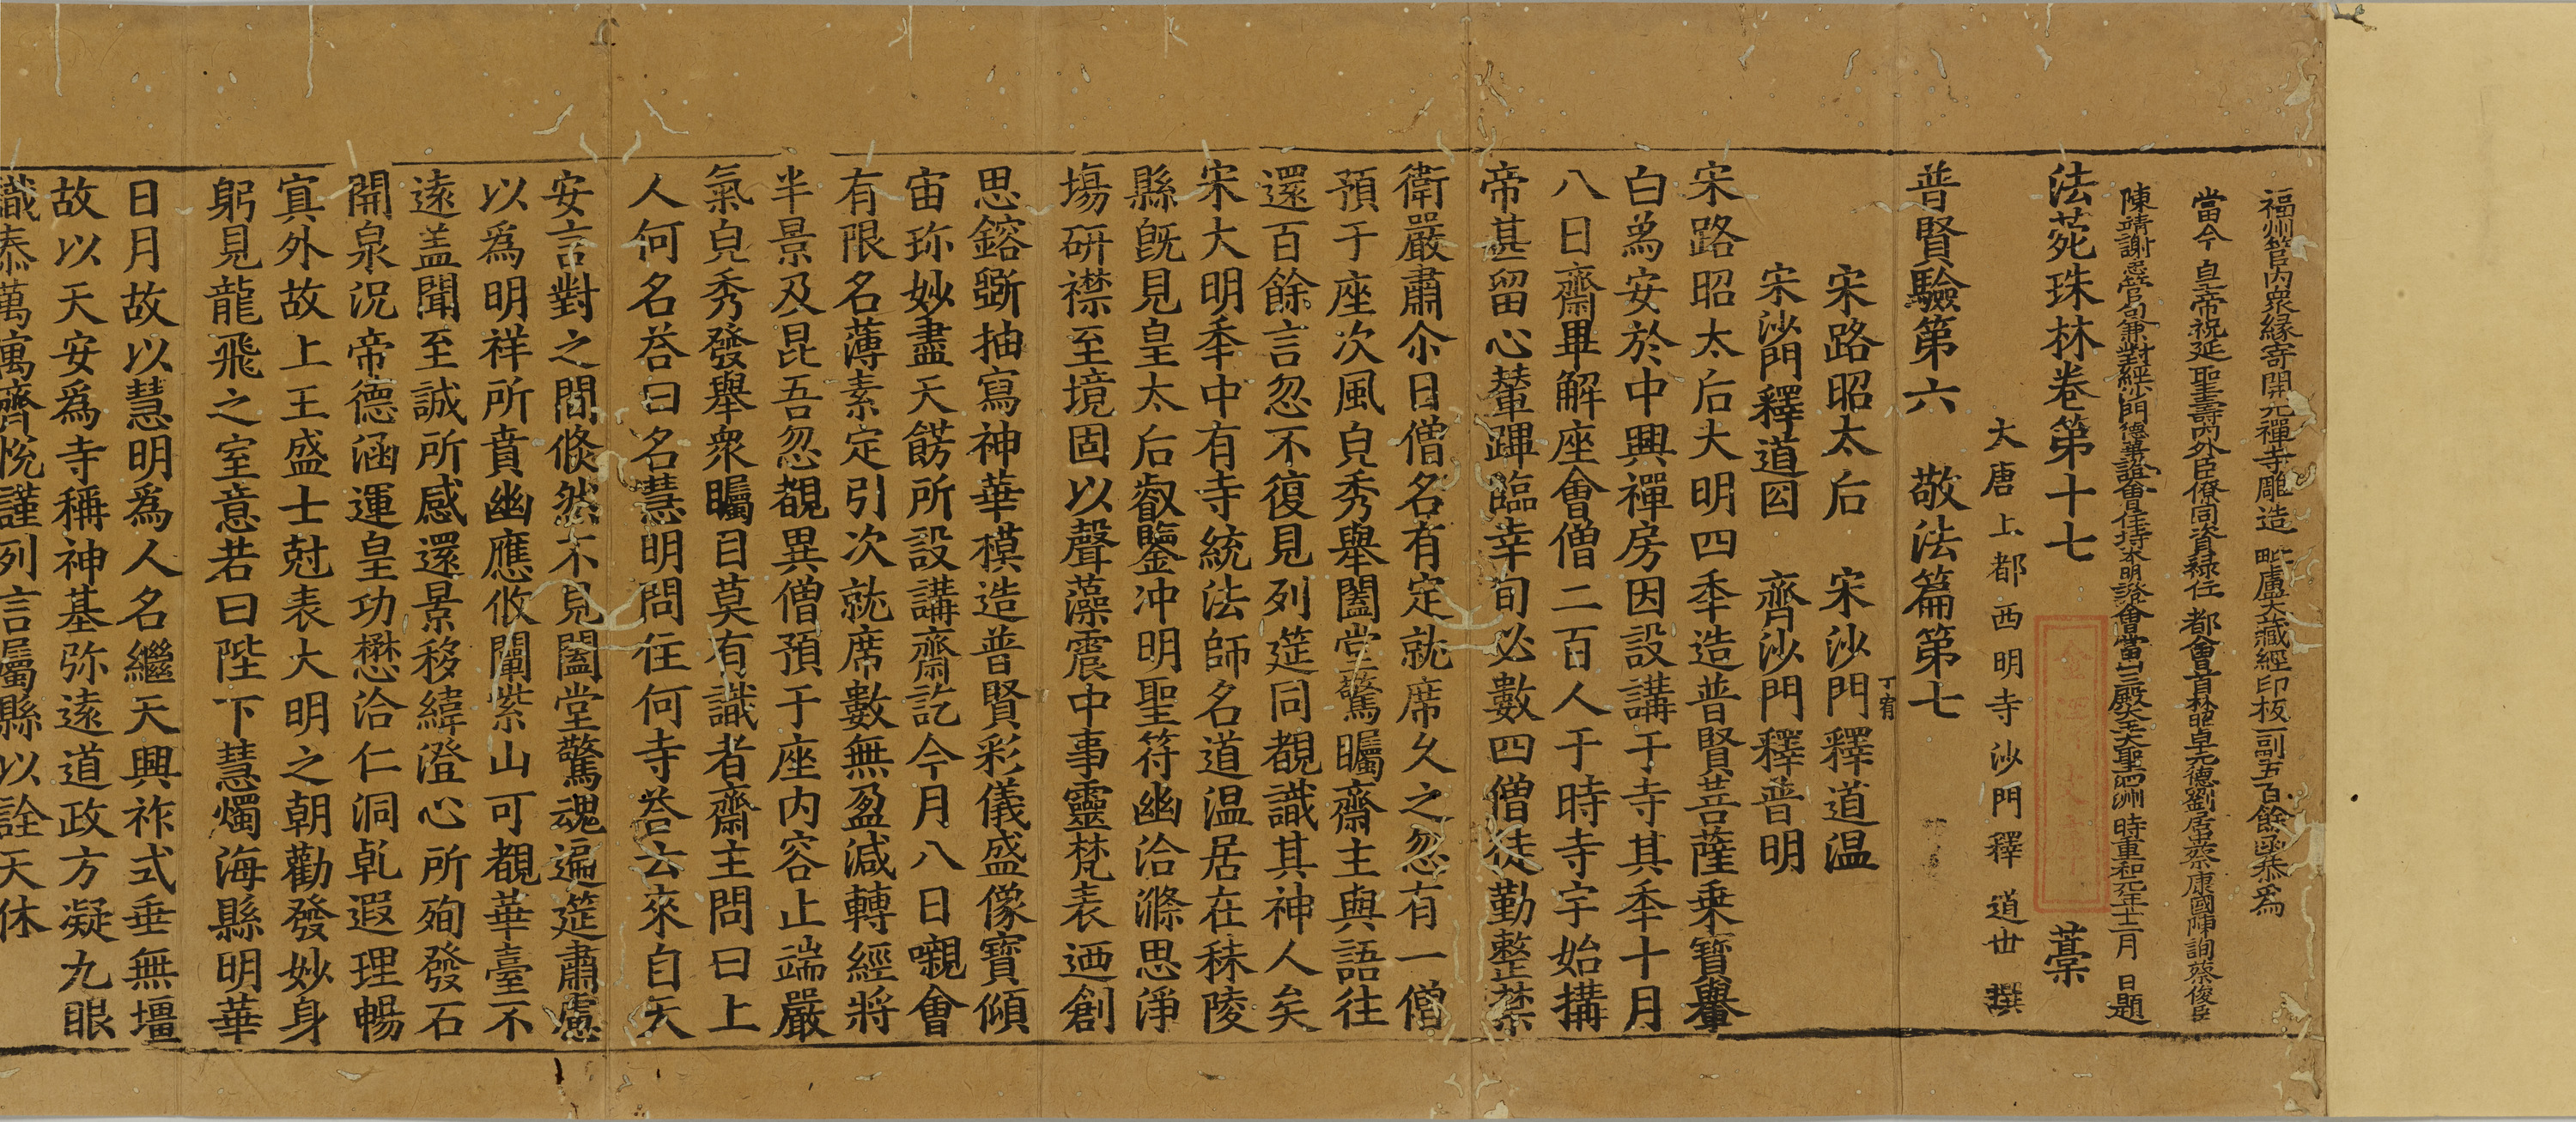 福州管内衆縁寄開元禪寺雕造 毗盧大藏經印板一副五百餘函恭爲
當今 皇帝祝延聖壽內外臣僚同資禄位 都會首林昭卓元德劉居中蔡康國陳詢蔡俊臣
陳靖謝忠管句兼對經沙門德華證會住持本明證會當山三殿大王大聖泗洲 時重和元年十二月 日題
法菀珠林卷第十七 藁
大唐上都西明寺沙門釋 道世 撰
普賢驗第六 敬法篇第七
宋路昭太后 宋沙門釋道温
丁宥
宋沙門釋道冏 齊沙門釋普明
宋路昭太后大明四秊造普賢菩薩乗寳轝
白為安於中興禪房因設講于寺其秊十月
八日齋畢解座會僧二百人于時寺宇始搆
帝甚留心輦蹕臨幸旬必數四僧徒勤整禁
衛嚴肅尒日僧名有定就席久之忽有一僧
預于座次風皃秀舉闔堂驚矚齋主與語往
還百餘言忽不復見列筵同覩識其神人矣
宋大明秊中有寺統法師名道温居在秣陵
縣旣見皇太后叡鑒沖明聖符幽洽滌思淨
塲研襟至境固以聲藻震中事靈梵表迺創
思鎔斵抽寫神華模造普賢彩儀盛像寳傾
宙珎妙盡天飾所設講齋訖今月八日嚫會
有限名薄素定引次就席數無盈減轉經將
半景及昆吾忽覩異僧預于座内容止端嚴
氣皃秀發舉衆矚目莫有識者齋主問曰上
人何名荅曰名慧明問住何寺荅云來自天
安言對之間倏然不見闔堂驚魂遍筵肅慮
以爲明祥所賁幽應攸闡紫山可覩華臺不
逺盖聞至誠所感還景移緯澄心所殉發石
開泉況帝德涵運皇功懋洽仁洞乹遐理暢
冥外故上王盛士尅表大明之朝勸發妙身
躬見龍飛之室意若曰陛下慧燭海縣明華
日月故以慧明爲人名繼天興祚式垂無壃
故以天安爲寺稱神基弥逺道政方凝九眼
識泰萬寓齊悅謹列言屬縣以詮天休